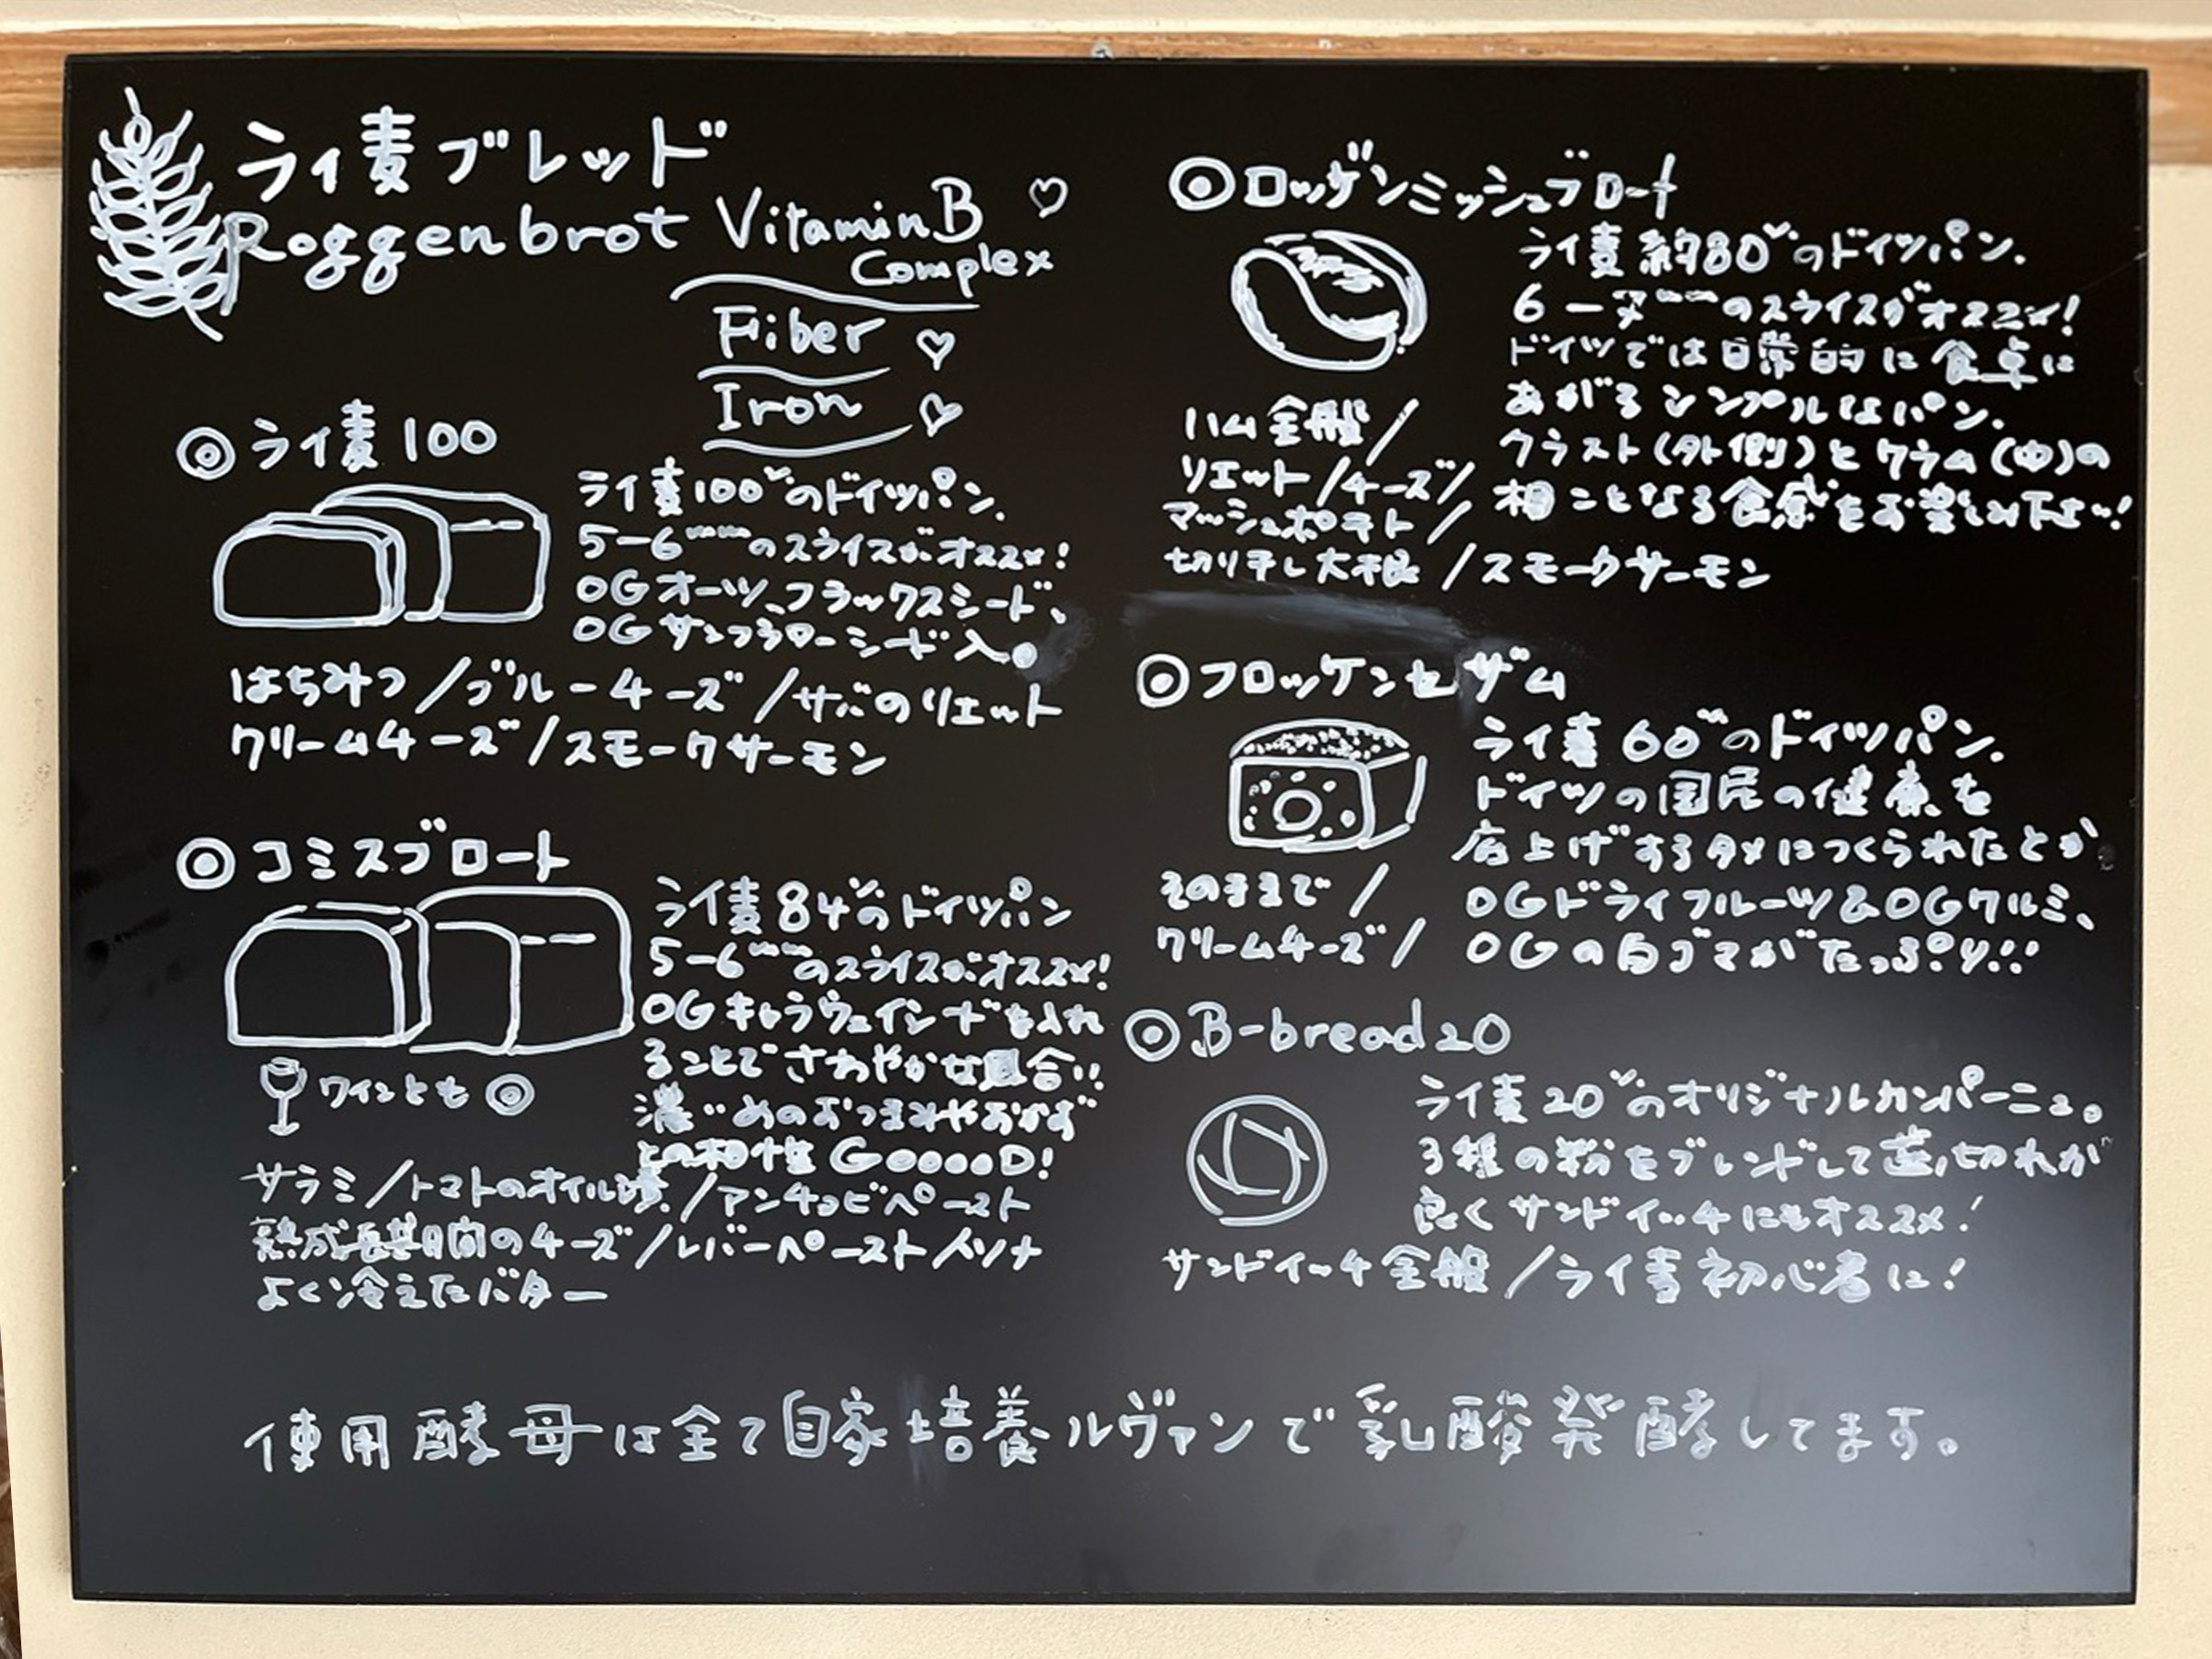 ライ麦ブレッド
Roggenbrot
Vitamin B ♡
Complex
Fiber ♡
Iron ♡
◎ライ麦100
ライ麦100%のドイツパン.
5-6mmのスライスがオススメ!
OGオーツ、フラックスシード、
OGサンフラワーシード入。
はちみつ/ブルーチーズ/サバのリエット
クリームチーズ/スモークサーモン
◎コミスブロート
ライ麦84%のドイツパン
5-6mmのスライスがオススメ!
OGキャラウェイシードを入れ
ることでさわやかな風合!!
濃いめのおつまみやおかず
との相性GooooD!
ワインとも◎
サラミ/トマトのオイル漬/アンチョビペースト
熟成長期間のチーズ/レバーペースト/ツナ
よく冷えたバター
◎ロッゲンミッシュブロート
ライ麦約80%のドイツパン.
6-7mmのスライスがオススメ!
ドイツでは日常的に食卓に
あがるシンプルなパン.
クラスト(外側)とクラム(中)の
相ことなる食感をお楽しみ下さい!
ハム全般/
リエット/チーズ/
マッシュポテト/
切り干し大根/スモークサーモン
◎フロッケンセザム
ライ麦60%のドイツパン.
ドイツの国民の健康を
底上げするタメにつくられたとか。
OGドライフルーツ&OGクルミ、
OGの白ゴマがたっぷり!!
そのままで/
クリームチーズ/
◎B-bread20
ライ麦20%のオリジナルカンパーニュ。
3種の粉をブレンドして歯切れが
良くサンドイッチにもオススメ!
サンドイッチ全般/ライ麦初心者に!
使用酵母は全て自家培養ルヴァンで乳酸発酵してます。